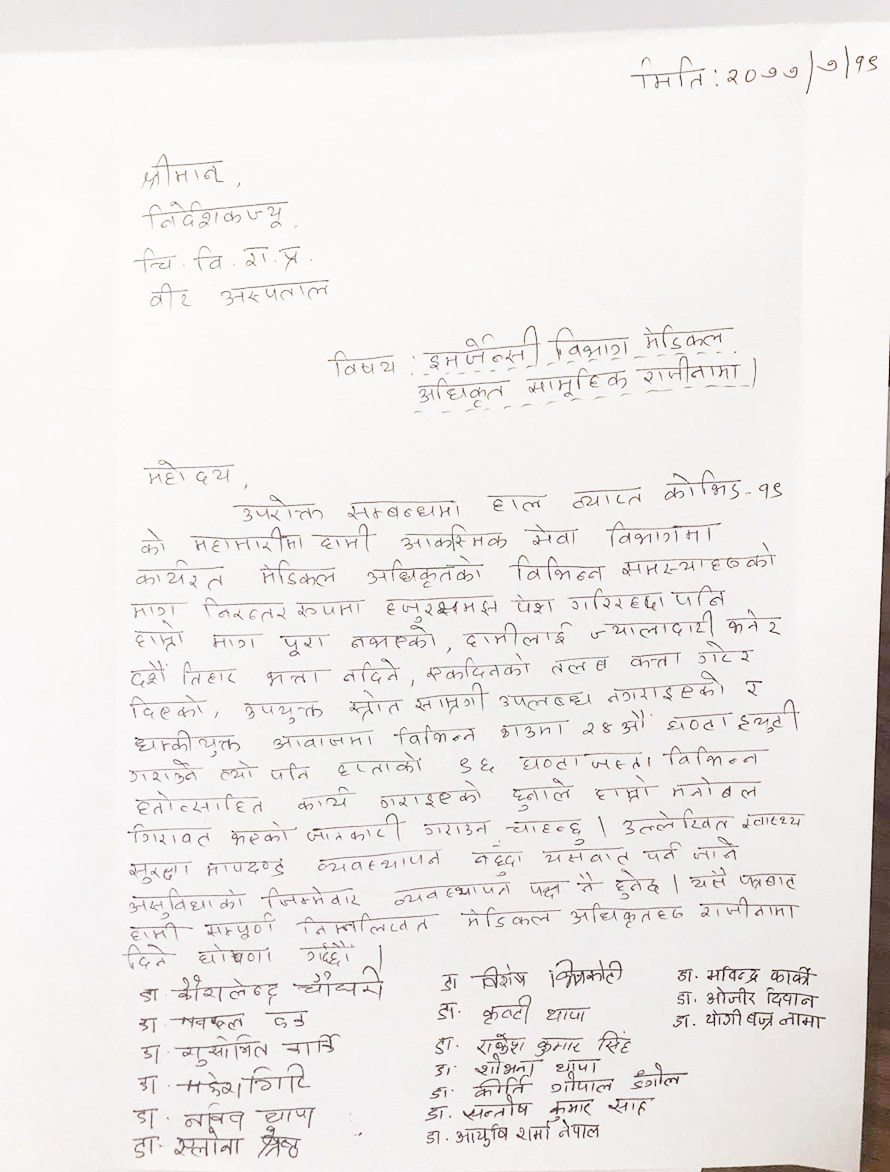 मिति: २०७७/७/१९
श्रीमान्,
निर्देशकज्यू,
चि. वि. रा. प्र.
वीर अस्पताल
विषय : इमर्जेन्सी विभाग मेडिकल
अधिकृत सामूहिक राजीनामा।
महोदय,
उपरोक्त सम्बन्धमा हाल व्याप्त कोभिड-१९
को महामारीमा हामी आकस्मिक सेवा विभागमा
कार्यरत मेडिकल अधिकृतको विभिन्न समस्याहरुको
माग निरन्तर रूपमा हजुरसमक्ष पेश गरिरहदा पनि
हाम्रो माग पूरा नभएको, हामीलाई ज्यालादारी भनेर
दशैं तिहार भत्ता नदिने, एकदिनको तलब कत्ता गरेर
दिएको, उपयुक्त स्त्रोत सामग्री उपलब्ध नगराइएको र
धम्कीयुक्त आवाजमा विभिन्न २४ औं घण्टा ड्युटी
गराउने त्यो पनि हप्ताको ९६ घण्टा जस्ता विभिन्न
हतोत्साहित कार्य गराइएको हुनाले हाम्रो मनोबल
गिरावत भएको जानकारी गराउन चाहन्छु। उल्लेखित स्वास्थ्य
सुरक्षा मापदण्ड व्यवस्थापन नहुँदा यसबात पर्न जाने
असुविधाको जिम्मेवार व्यवस्थापन पक्ष नै हुनेछ। यसै पत्रबाट
हामी सम्पूर्ण निम्नलिखित मेडिकल अधिकृतहरु राजीनामा
दिने घोषणा गर्दछौं।
डा. कौशलेन्द्र चौधरी
डा.
डा. सुसोभित
डा. महेश गिरि
डा. नविन थापा
डा. स्लोना श्रेष्ठ
डा विशेष
डा. कृन्टी थापा
डा. राकेश कुमार सिंह
डा. शोभना थापा
डा. कीर्ति गोपाल डंगोल
डा. सन्तोष कुमार साह
डा. आयुषि शर्मा नेपाल
डा. भविन्द्र कार्की
डा. ओजीर दिवान
डा. योगी बज्र लामा